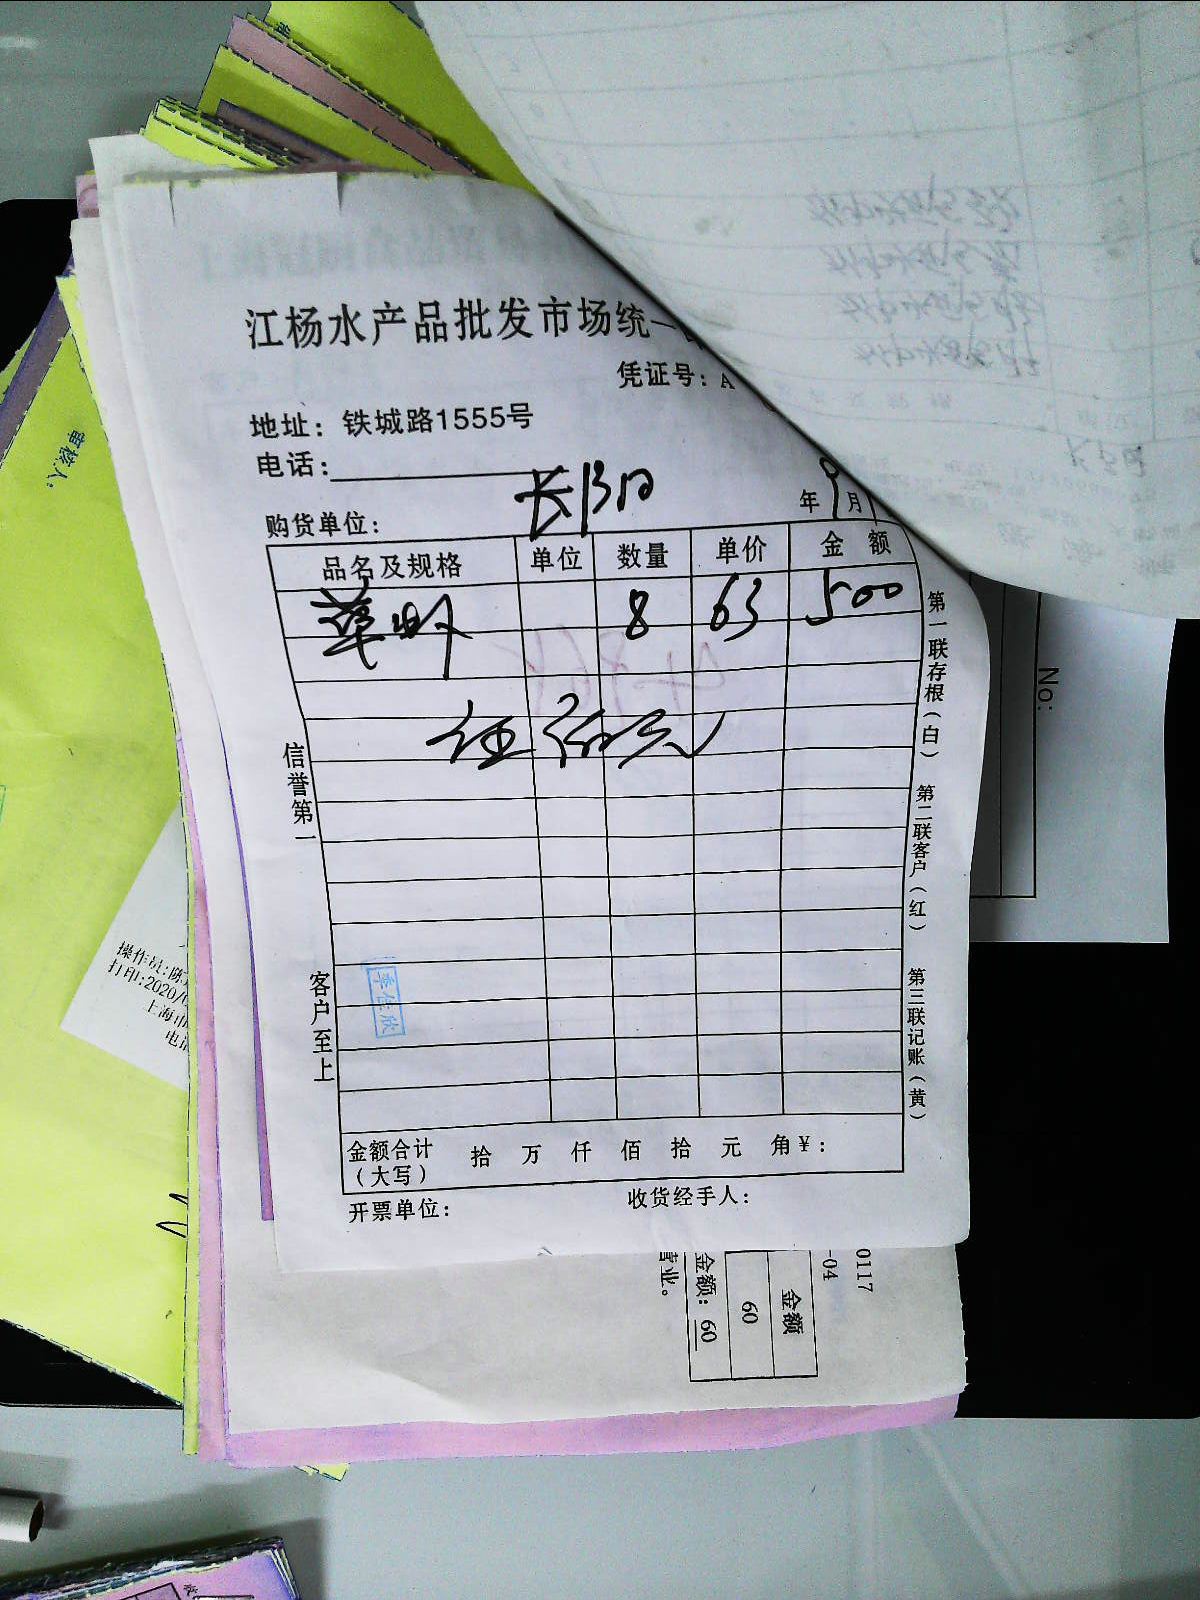 江杨水产品批发市场统一
凭证号：A
地址：铁城路1555号
电话：
购货单位：
年9月
品名及规格 单位 数量 单价 金额
草虾 8 63 500
信誉第一
客户至上
第一联存根（白） 第二联客户（红） 第三联记账（黄）
李佳欣
金额合计（大写） 拾 万 仟 佰 拾 元 角 ¥：
开票单位：
收货经手人：
审核人：
No:
打印:2020/
金额
60
金额：60
营业。
0117
-04